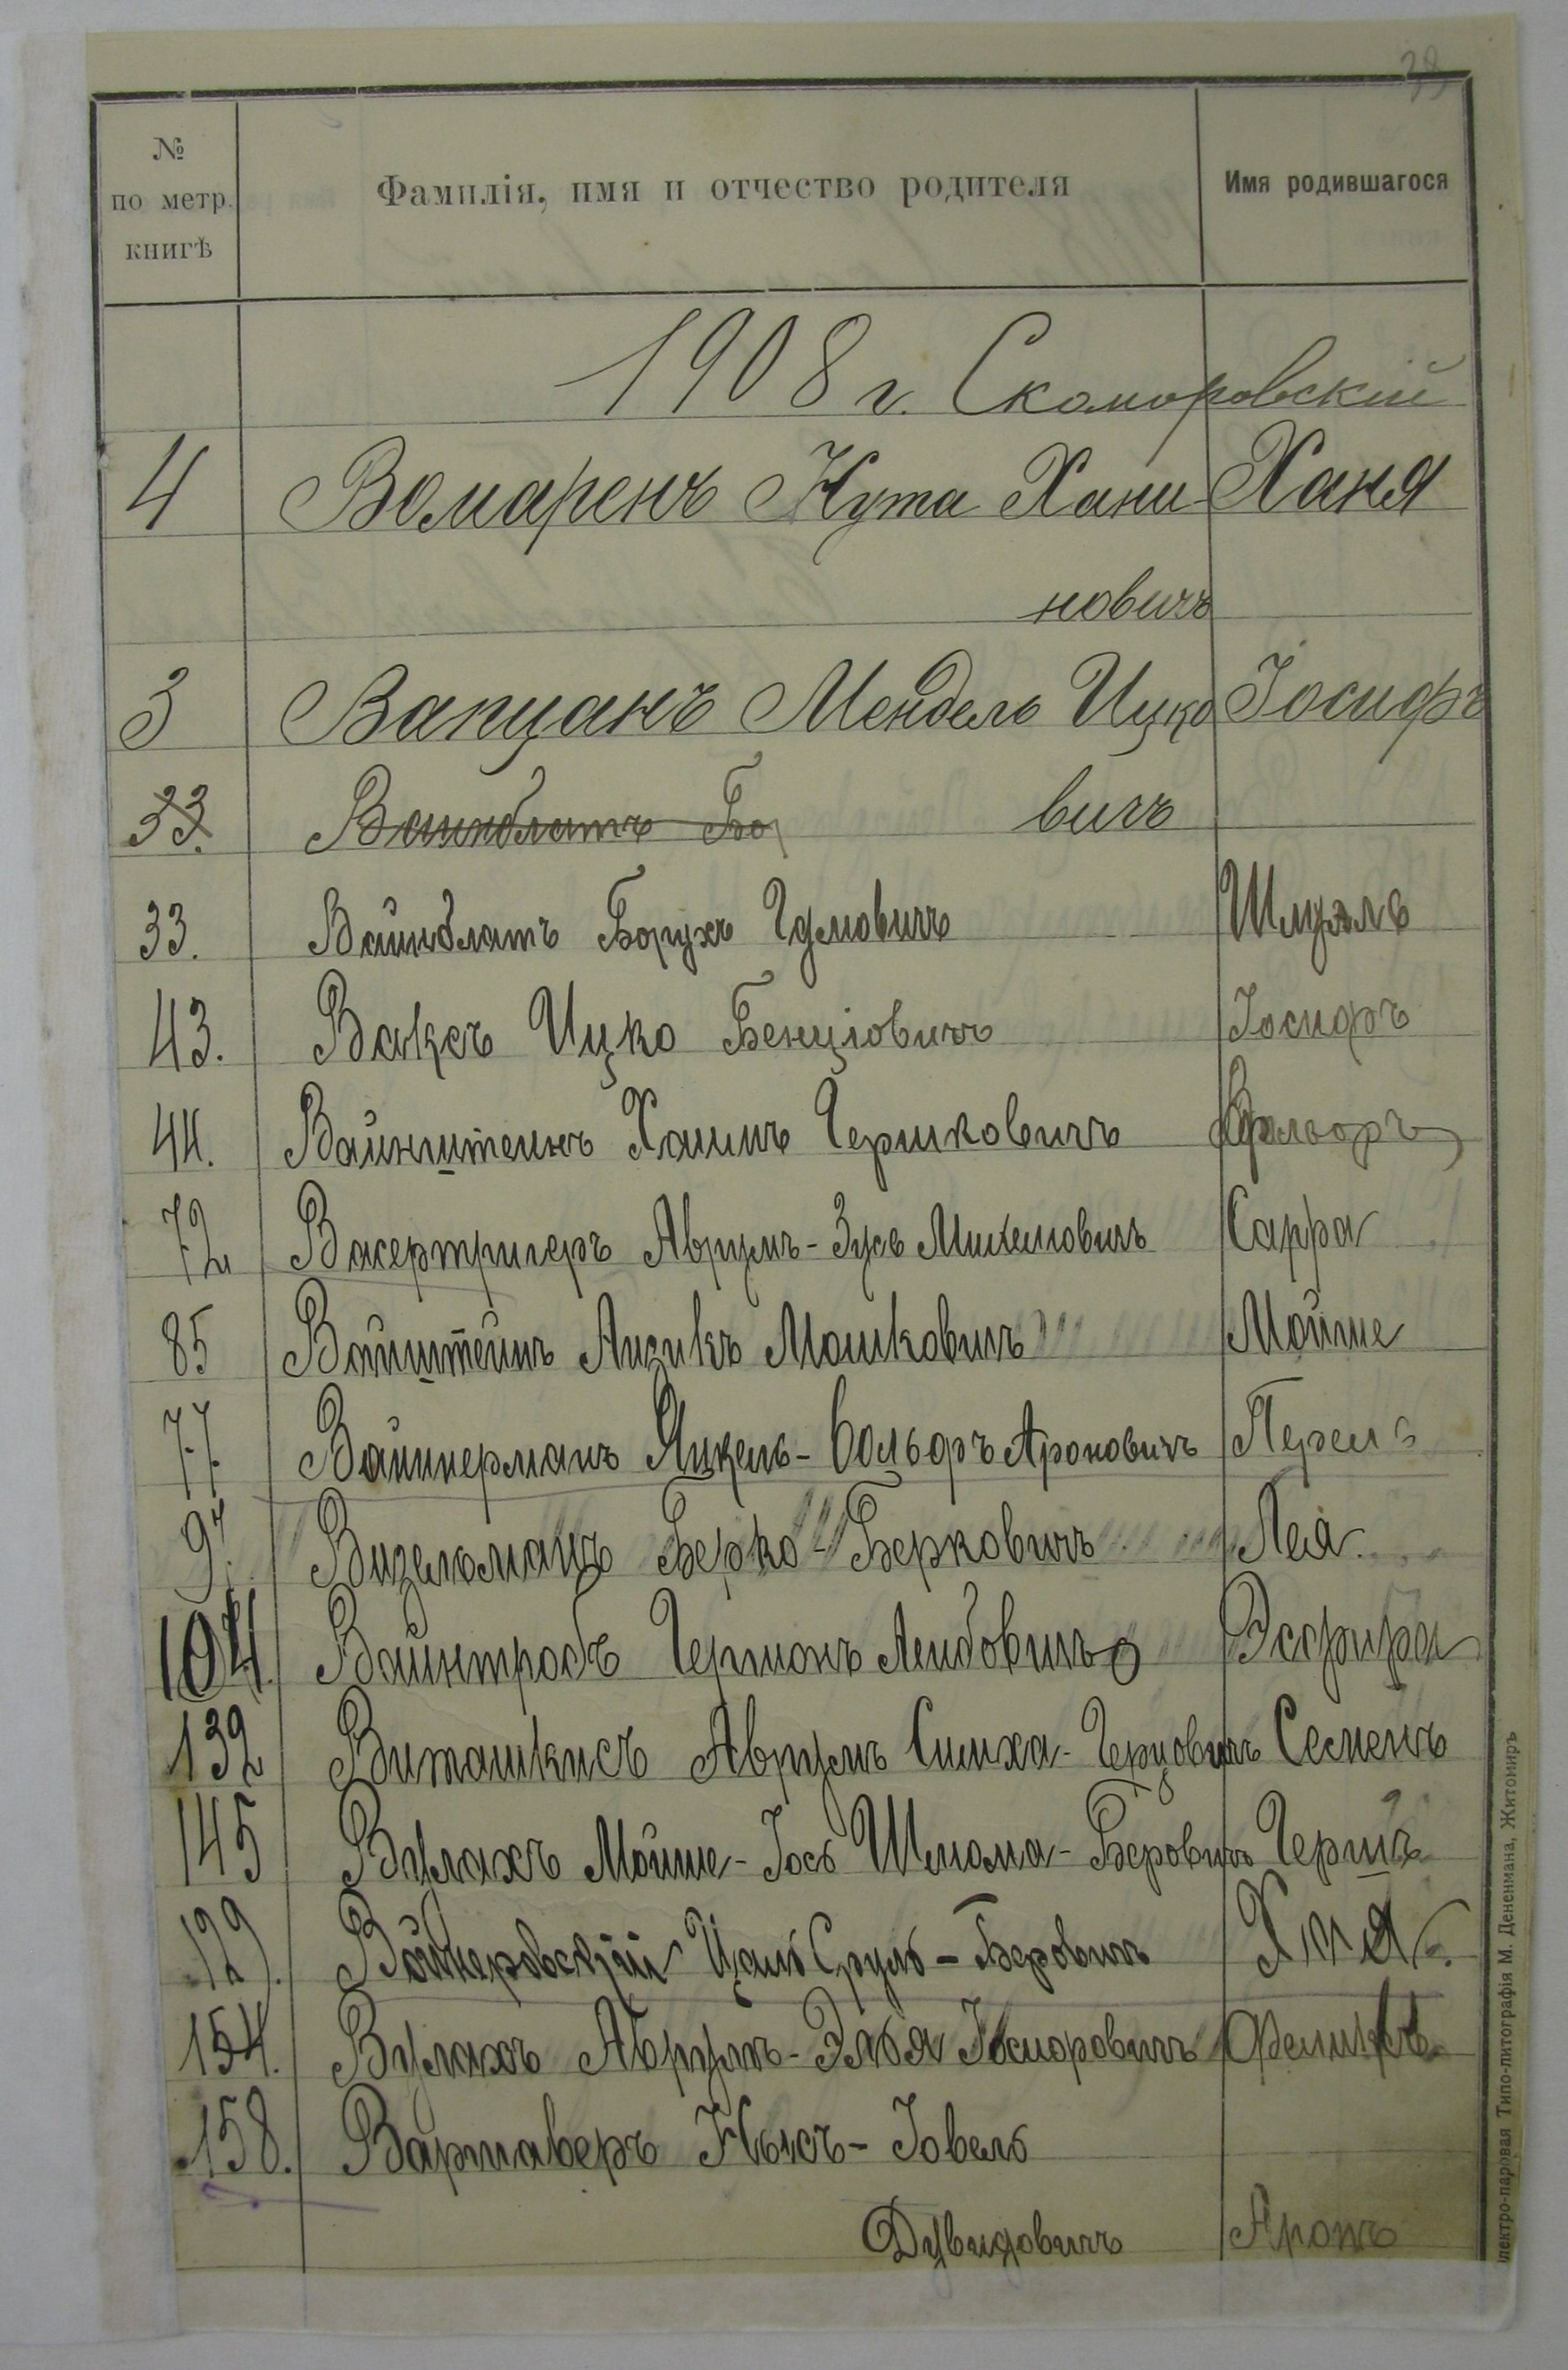 39
№ по метр. книгѣ Фамилія, имя и отчество родителя Имя родившагося
1908 г. Скоморовскій
4 Вомаренъ Нута Хани Ханя
новичъ
3 Вапцанъ Мендель Ицко Іосифъ
33. Вайнблатъ Бо вичъ
33. Вайнблатъ Борухъ Гдмовичъ Шмуль
43.Ваксъ Ицко Бенціовичъ Іосифъ
44. Вайнштейнъ Хаимъ Гершковичъ Вольфъ
72 Васертригеръ Аврумъ-Зусь Михелиовичъ Сарра
85 Вайнштейнъ Аизикъ Мошковичъ Мойше
77 Вайннерманъ Янкель-Вольфъ Ароновичъ Перель
97. Визельманъ Берко-Берковичъ Лея
104. Вайнтробъ Германъ Лейбовичъ Эсфирь
132 Виташкисъ Аврумъ Симха-Герцовичъ Семенъ
145 Вулахъ Мойше-Іось Шлиома-Беровичъ Гершъ
129. Войнеровскій Цаль Сруль-Беровичъ Хая
154. Вулахъ Аврумъ-Элья Іосифовичъ Феликсъ
158. Вартаверъ Ныкъ-Іовель
Дувидовичъ Аронъ
лектро-паровая Типо-литографія М. Дененмана, Житомиръ